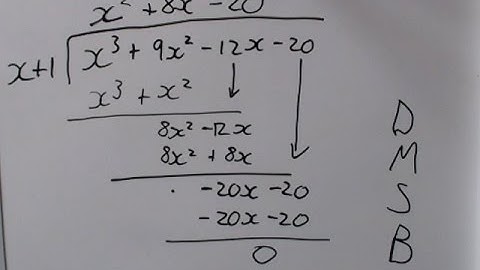 x² + 8x - 20
x+1 x³ + 9x² - 12x - 20
x³ + x²
8x² - 12x
8x² + 8x
-20x - 20
-20x - 20
0
D
M
S
B